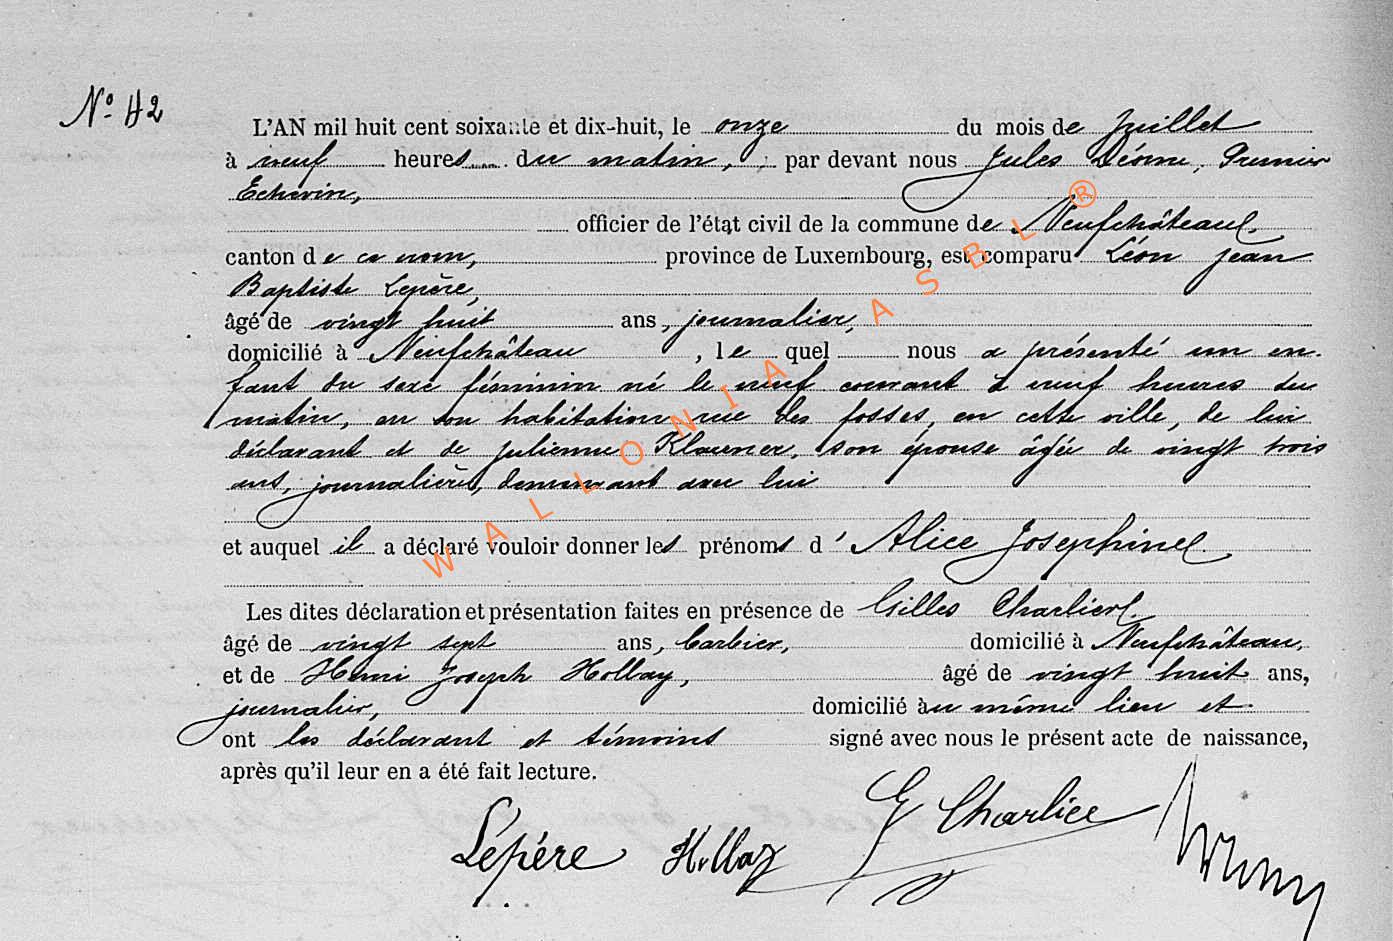 N° 42
L'AN mil huit cent soixante et dix-huit, le onze du mois de Juillet
à neuf heures du matin, par devant nous Jules Premier
Echevin,
officier de l'état civil de la commune de Neufchâteau
canton de ce nom, province de Luxembourg, est comparu Léon Jean
Baptiste Lepère,
âgé de vingt huit ans, journalier,
domicilié à Neufchâteau, lequel nous a présenté un en-
fant du sexe féminin né le neuf courant à neuf heures du
matin, en son habitation rue des fossés, en cette ville, de lui
déclarant et de Julienne son épouse âgée de vingt trois
ans, journalière, demeurant avec lui
et auquel il a déclaré vouloir donner les prénoms d'Alice Josephine
Les dites déclaration et présentation faites en présence de Gilles Charlier
âgé de vingt sept ans, barbier, domicilié à Neufchâteau,
et de Henri Joseph Hollay, âgé de vingt huit ans,
journalier, domicilié au même lieu et
ont les déclarant et témoins signé avec nous le présent acte de naissance,
après qu'il leur en a été fait lecture.
Lepère Hollay G Charlier
WALLONIA ASBL ®